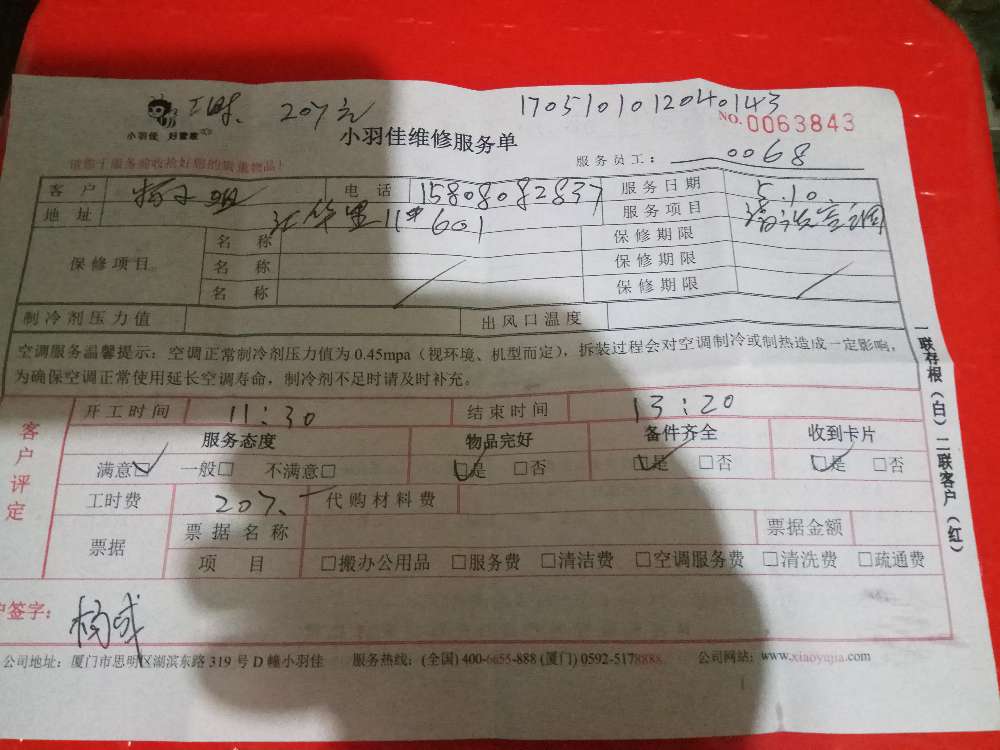 工时、207元 170510101204０143
小羽佳 好管家 小羽佳维修服务单 NO.0063843
请您于服务前收捡好您的贵重物品！ 服务员工： 0068
客户 杨小姐 电话 15808082837 服务日期 5.10
地址 11# 601 服务项目
保修项目 名称 保修期限
名称 保修期限
名称 保修期限
制冷剂压力值 出风口温度
空调服务温馨提示：空调正常制冷剂压力值为0.45mpa（视环境、机型而定），拆装过程会对空调制冷或制热造成一定影响，
为确保空调正常使用延长空调寿命，制冷剂不足时请及时补充。
客户评定
开工时间 11:30 结束时间 13:20
服务态度 物品完好 备件齐全 收到卡片
满意□ 一般□ 不满意□ □是 □否 □是 □否 □是 □否
工时费 207. 代购材料费
票据 票据名称 票据金额
项目 □搬办公用品 □服务费 □清洁费 □空调服务费 □清洗费 □疏通费
户签字： 杨成
公司地址：厦门市思明区湖滨东路319号D幢小羽佳 服务热线：(全国)400-6655-888(厦门)0592-5178888 公司网站：www.xiaoyujia.com
一联存根（白）二联客户（红）